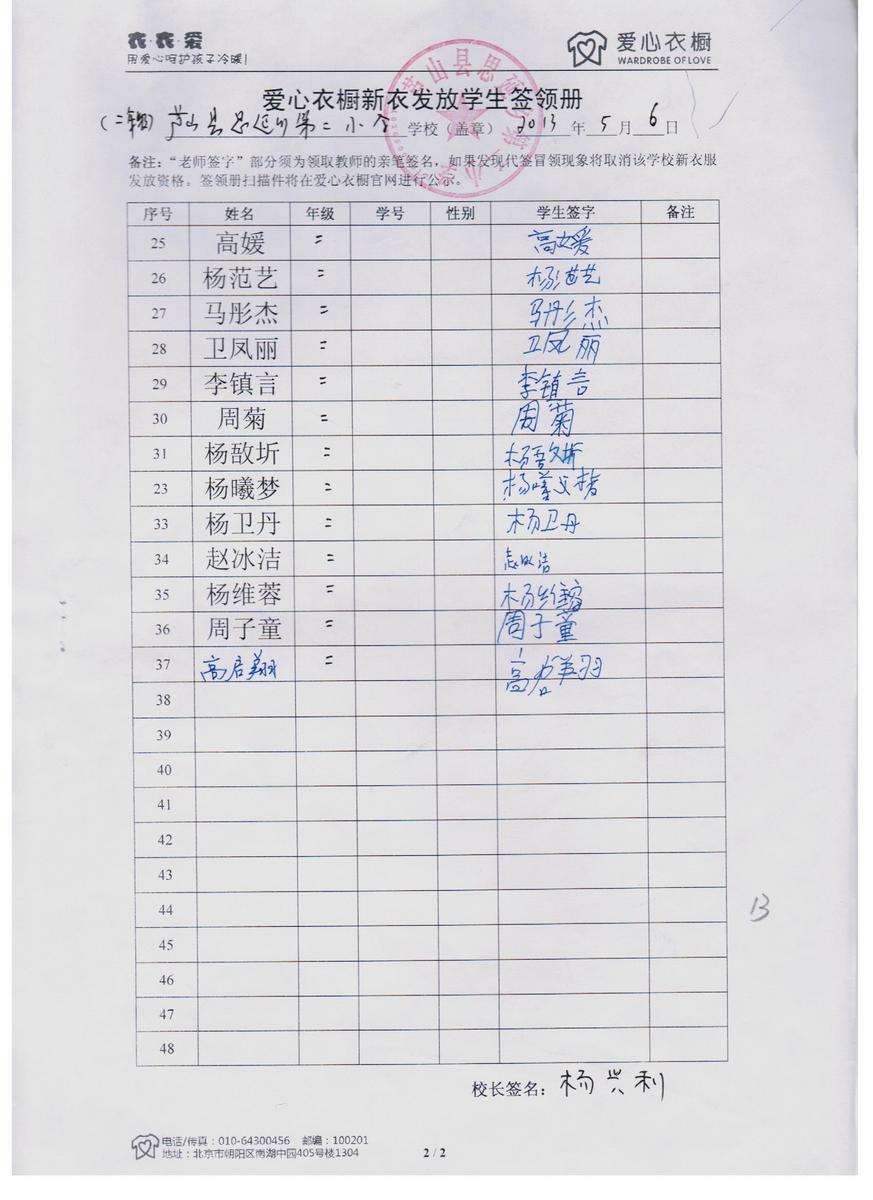 衣·衣·爱
用爱心呵护孩子冷暖!
爱心衣橱
WARDROBE OF LOVE
爱心衣橱新衣发放学生签领册
芦山县思延乡第二小学 学校（盖章） 2013 年 5 月 6 日
备注：“老师签字”部分须为领取教师的亲笔签名，如果发现代签冒领现象将取消该学校新衣服
发放资格。签领册扫描件将在爱心衣橱官网进行公示。
序号 姓名 年级 学号 性别 学生签字 备注
25 高媛 二 高媛
26 杨范艺 二 杨范艺
27 马彤杰 二 马彤杰
28 卫凤丽 二 卫凤丽
29 李镇言 二 李镇言
30 周菊 二 周菊
31 杨敔圻 二
23 杨曦梦 二
33 杨卫丹 二 杨卫丹
34 赵冰洁 二
35 杨维蓉 二
36 周子童 二 周子董
37 高启翔 二 高启翔
38
39
40
41
42
43
44
45
46
47
48
13
校长签名：杨兴利
电话/传真：010-64300456 邮编：100201
地址：北京市朝阳区南湖中园405号楼1304
2 / 2